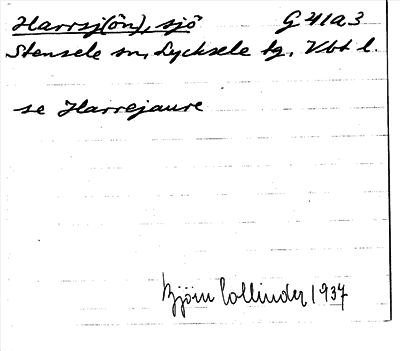 Harrsj(ön), sjö G 41a3
Stensele sn, Lycksele tg. Vbt l.
se Harrejaure
Björn Collinder 1937